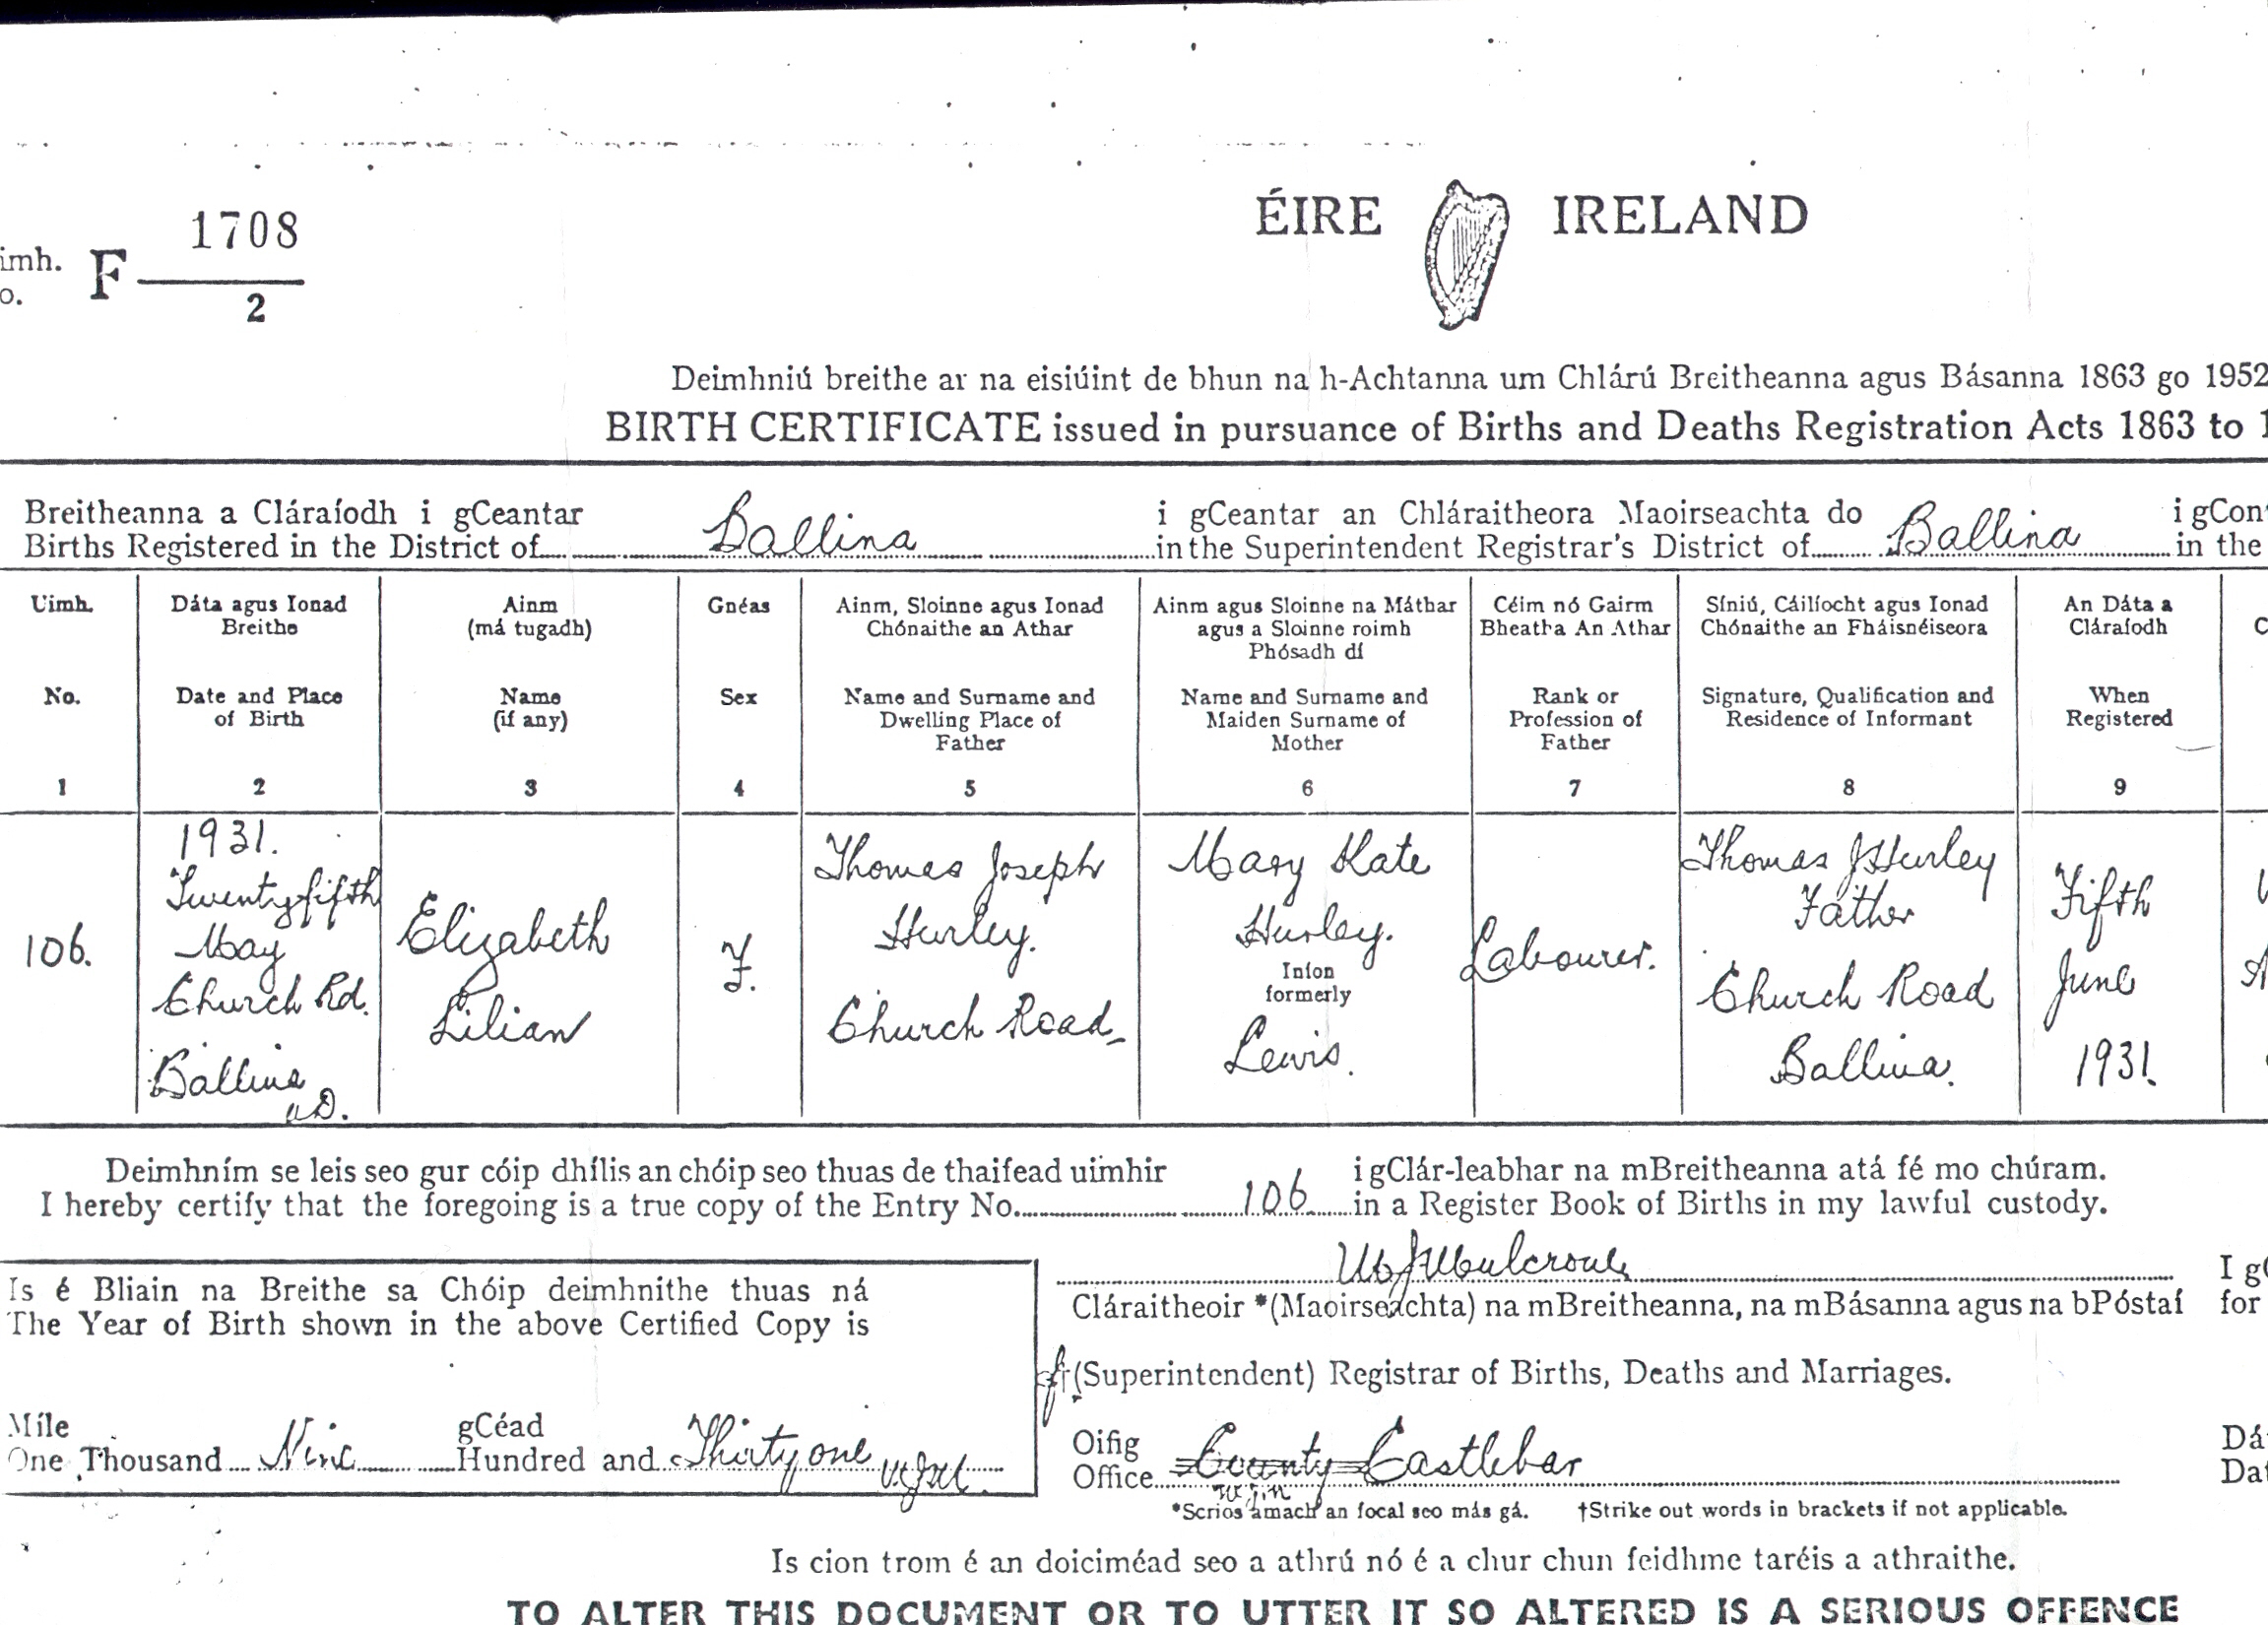 ÉIRE IRELAND
1708
imh. F
o. 2
Deimhniú breithe ar na eisiúint de bhun na h-Achtanna um Chlárú Breitheanna agus Básanna 1863 go 1952
BIRTH CERTIFICATE issued in pursuance of Births and Deaths Registration Acts 1863 to 1
Breitheanna a Cláraíodh i gCeantar i gCeantar an Chláraitheora Maoirseachta do i gCon
Births Registered in the District of Ballina in the Superintendent Registrar's District of Ballina in the
Uimh.
No.
1
106.
Dáta agus Ionad
Breithe
Date and Place
of Birth
2
1931.
Twentyfifth
May
Church Rd.
Ballina
U.D.
Ainm
(má tugadh)
Name
(if any)
3
Elizabeth
Lilian
Gnéas
Sex
4
F.
Ainm, Sloinne agus Ionad
Chónaithe an Athar
Name and Surname and
Dwelling Place of
Father
5
Thomas Joseph
Hurley.
Church Road
Ainm agus Sloinne na Máthar
agus a Sloinne roimh
Phósadh dí
Name and Surname and
Maiden Surname of
Mother
6
Mary Kate
Hurley.
Iníon
formerly
Lewis.
Céim nó Gairm
Bheatha An Athar
Rank or
Profession of
Father
7
Labourer.
Síniú, Cáilíocht agus Ionad
Chónaithe an Fháisnéiseora
Signature, Qualification and
Residence of Informant
8
Thomas J Hurley
Father
Church Road
Ballina.
An Dáta a
Cláraíodh
When
Registered
9
Fifth
June
1931.
Deimhním se leis seo gur cóip dhílis an chóip seo thuas de thaifead uimhir i gClár-leabhar na mBreitheanna atá fé mo chúram.
I hereby certify that the foregoing is a true copy of the Entry No. 106 in a Register Book of Births in my lawful custody.
Is é Bliain na Breithe sa Chóip deimhnithe thuas ná
The Year of Birth shown in the above Certified Copy is
Míle gCéad
One Thousand Nine Hundred and Thirty one
Cláraitheoir *(Maoirseachta) na mBreitheanna, na mBásanna agus na bPóstaí
†(Superintendent) Registrar of Births, Deaths and Marriages.
I g
for
Oifig
Office County Castlebar
Dá
Dat
*Scrios amach an focal seo más gá. †Strike out words in brackets if not applicable.
Is cion trom é an doiciméad seo a athrú nó é a chur chun feidhme taréis a athraithe.
TO ALTER THIS DOCUMENT OR TO UTTER IT SO ALTERED IS A SERIOUS OFFENCE